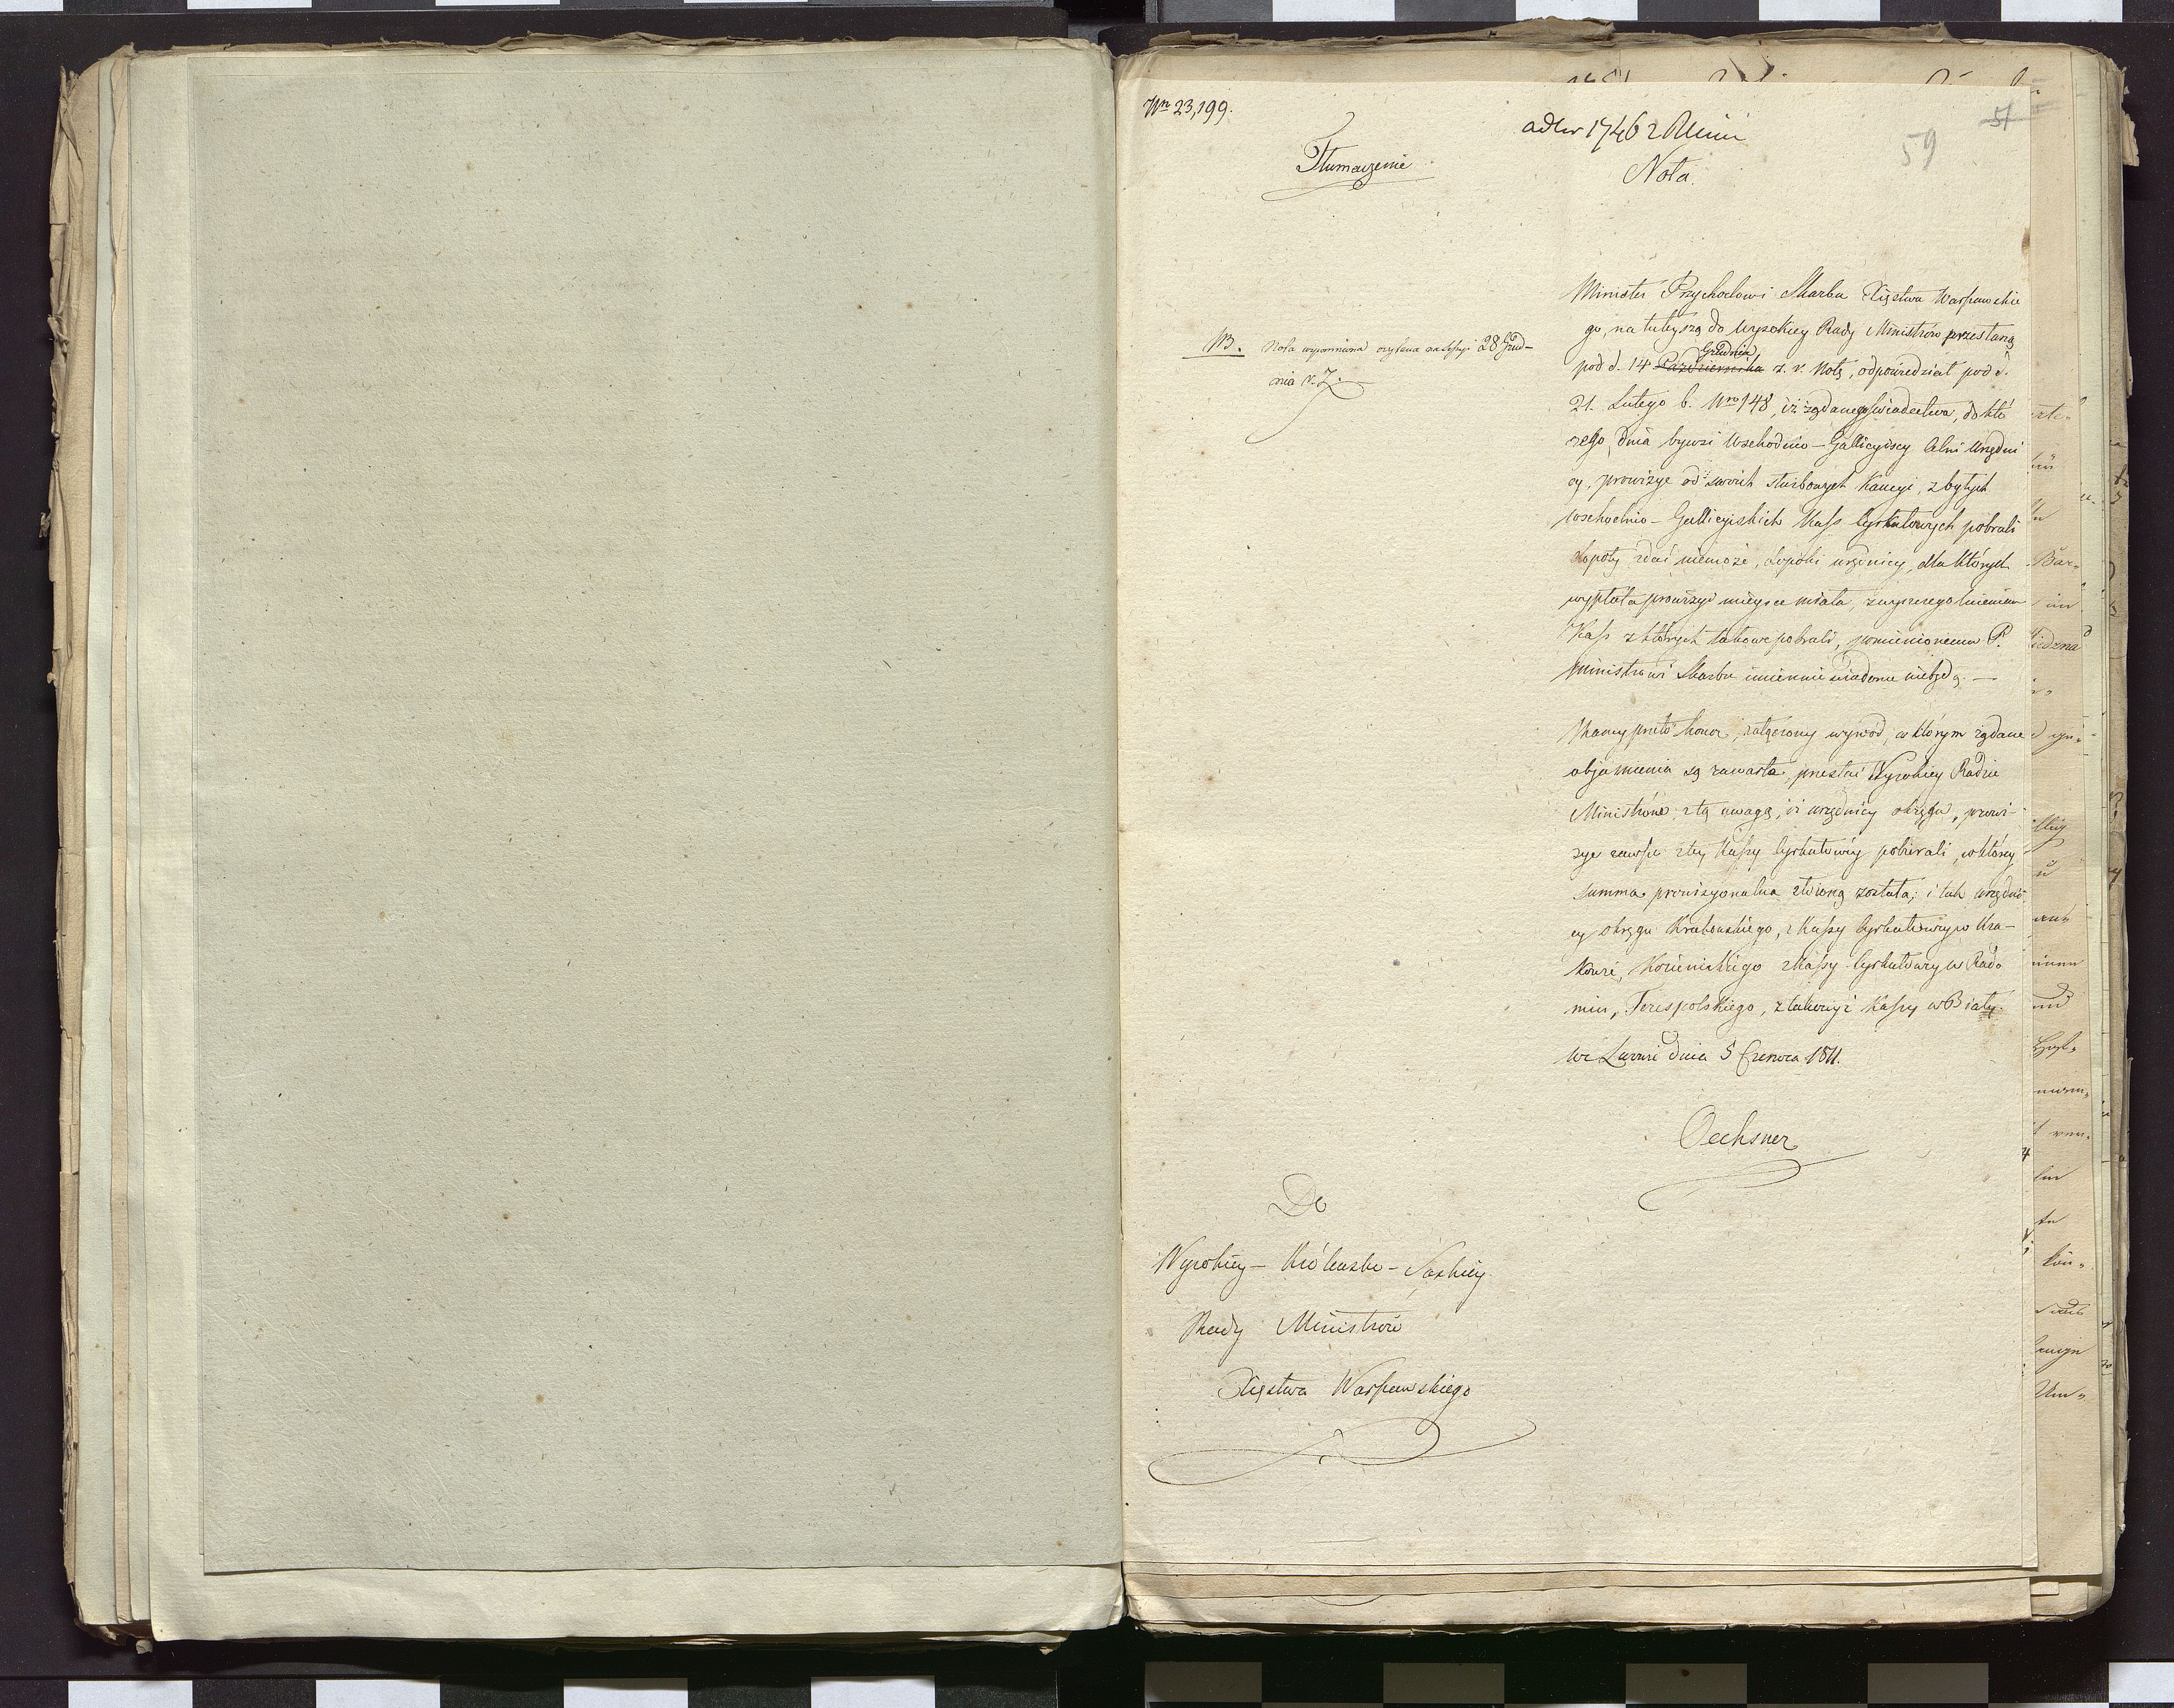 Nro 23,199.
ad Nr 1746 R Mini
51
59
Tłumaczenie
Nota.
Minister Przychodowi Skarbu Xięstwa Warszawskie
go, na tuteyszą do Wysokiey Rady Ministrów przesłaną
pod d. 14 Października Grudnia z. r. Notę, odpowiedział pod d.
21. Lutego b. Nro 148, iż żądanego świadectwa, do któ
rego dnia bywsi Wschodnio-Gallicyiscy Celni Urzędni
cy, prowizye od swoich służbowych Kaucyi, z byłych
wschodnio-Gallicyiskich Kass Cyrkułowych pobrali
dopóty zdać niemoże, dopóki urzędnicy, dla których
wypłata prowizyi mieysce miała, z wyszczególnieniem
Kass z których takowe pobrali, pomienionemu P.
Ministrowi Skarbu imiennie wiadome niebędą. —
NB. Nota wspomniona 28 Grud-
nia r. z.
Mamy przeto honor, załączony wywód, w którym żądane
objaśnienia są zawarte, przesłać Wysokiey Radzie
Ministrów, z tą uwagą, iż urzędnicy okręgu, prowi-
zye zawsze z tey Kassy Cyrkułowéy pobierali, w którey
summa prowizyonalna złożoną została; i tak urzędni-
cy okręgu Krakowskiego, z Kassy Cyrkułowey w Kra-
kowie, Kozienickiego z Kassy Cyrkułowey w Rado
miu, Terespolskiego, z takowéyż Kassy w Biały.
we Lwowie dnia 5 Czerwca 1811.
Oechsner
Do
Wysokiéy - Królewsko - Saskiéy
Rady Ministrów
Xięstwa Warszawskiego